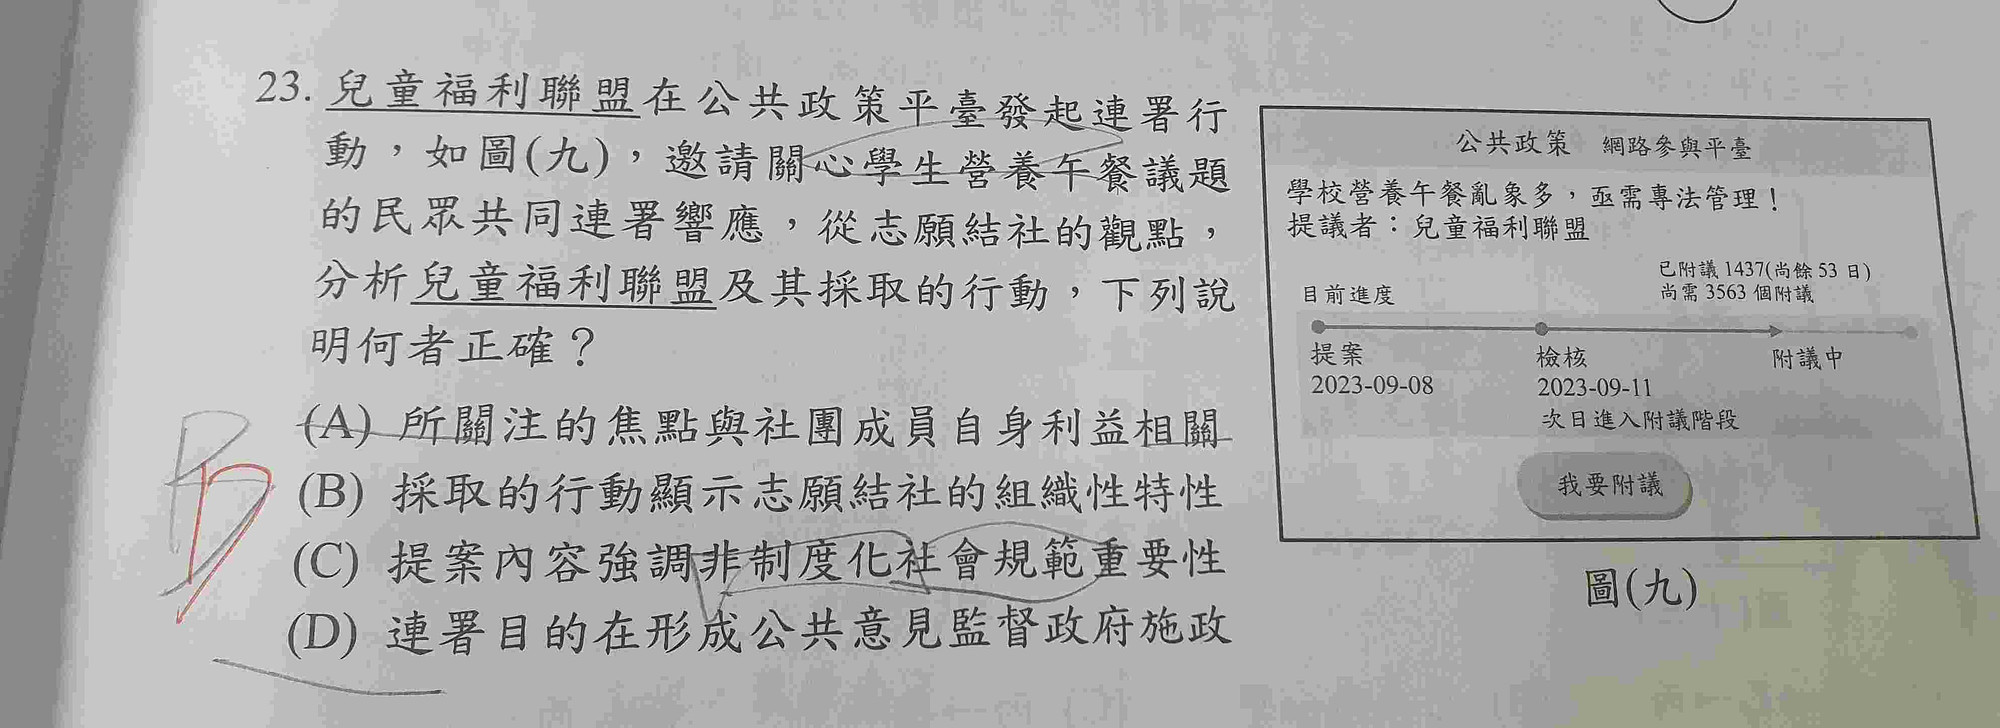 23. 兒童福利聯盟在公共政策平臺發起連署行
動，如圖(九)，邀請關心學生營養午餐議題
的民眾共同連署響應，從志願結社的觀點，
分析兒童福利聯盟及其採取的行動，下列說
明何者正確？
(A) 所關注的焦點與社團成員自身利益相關
(B) 採取的行動顯示志願結社的組織性特性
(C) 提案內容強調非制度化社會規範重要性
(D) 連署目的在形成公共意見監督政府施政
B
D
公共政策 網路參與平臺
學校營養午餐亂象多，亟需專法管理！
提議者：兒童福利聯盟
已附議 1437(尚餘 53 日)
目前進度 尚需 3563 個附議
提案 檢核 附議中
2023-09-08 2023-09-11
次日進入附議階段
我要附議
圖(九)